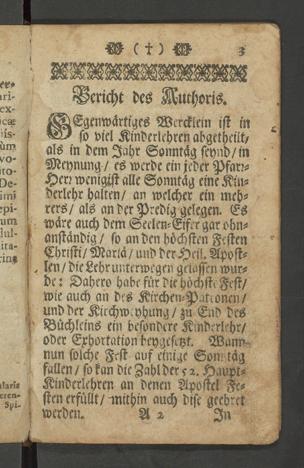 (†) 3
Bericht des Authoris.
GEgenwärtiges Wercklein ist in
so viel Kinderlehren abgetheilt/
als in dem Jahr Sonntäg seynd/in
Meynung/ es werde ein jeder Pfarr-
Herr wenigist alle Sonntäg eine Kin-
derlehr halten/ an welcher ein meh-
rers/ als an der Predig gelegen. Es
wäre auch dem Seelen-Eifer gar ohn-
anständig/ so an den höchsten Festen
Christi/ Mariä/ und der Heil. Apost-
len/ die Lehr unterwegen gelassen wur-
de: Dahero habe für die höchste Fest/
wie auch an des Kirchen-Patronen/
und der Kirchweyhung/ zu End des
Büchleins ein besondere Kinderlehr/
oder Exhortation beygesetzt. Wann
nun solche Fest auf einige Sonntäg
fallen/ so kan die Zahl der 52. Haupt-
Kinderlehren an denen Apostel Fe-
sten erfüllt/ mithin auch dise geehret
werden. A 2 In